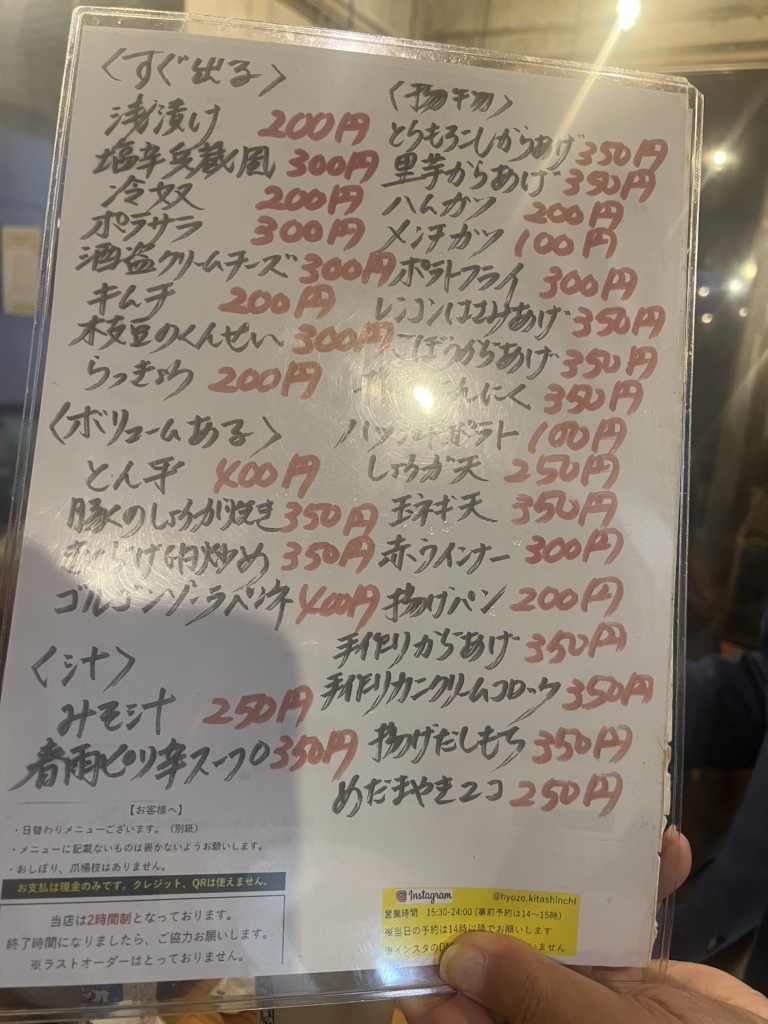 〈すぐ出る〉
浅漬け 200円
塩辛兵蔵風 300円
冷奴 200円
ポテサラ 300円
酒盗クリームチーズ 300円
キムチ 200円
枝豆のくんせい 300円
らっきょう 200円
〈ボリュームある〉
とん平 400円
豚のしょうが焼き 350円
卵炒め 350円
ゴルゴンゾーラペンネ 400円
〈汁〉
みそ汁 250円
春雨ピリ辛スープ 350円
〈揚げ物〉
とうもろこしからあげ 350円
里芋からあげ 350円
ハムカツ 200円
メンチカツ 100円
ポテトフライ 300円
レンコンはさみあげ 350円
ごぼうからあげ 350円
んにく 350円
ハッシュドポテト 100円
しょうが天 250円
玉ネギ天 350円
赤ウインナー 300円
揚げパン 200円
手作りからあげ 350円
手作りカニクリームコロッケ 350円
揚げだしもち 350円
めだまやき2コ 250円
【お客様へ】
・日替わりメニューございます。（別紙）
・メニューに記載ないものは書かないようお願いします。
・おしぼり、爪楊枝はありません。
お支払は現金のみです。クレジット、QRは使えません。
当店は2時間制となっております。
終了時間になりましたら、ご協力お願いします。
※ラストオーダーはとっておりません。
Instagram @hyozo.kitashinchi
営業時間 15:30-24:00（事前予約は14～15時）
※当日の予約は14時以降でお願いします
※インスタのDM いません